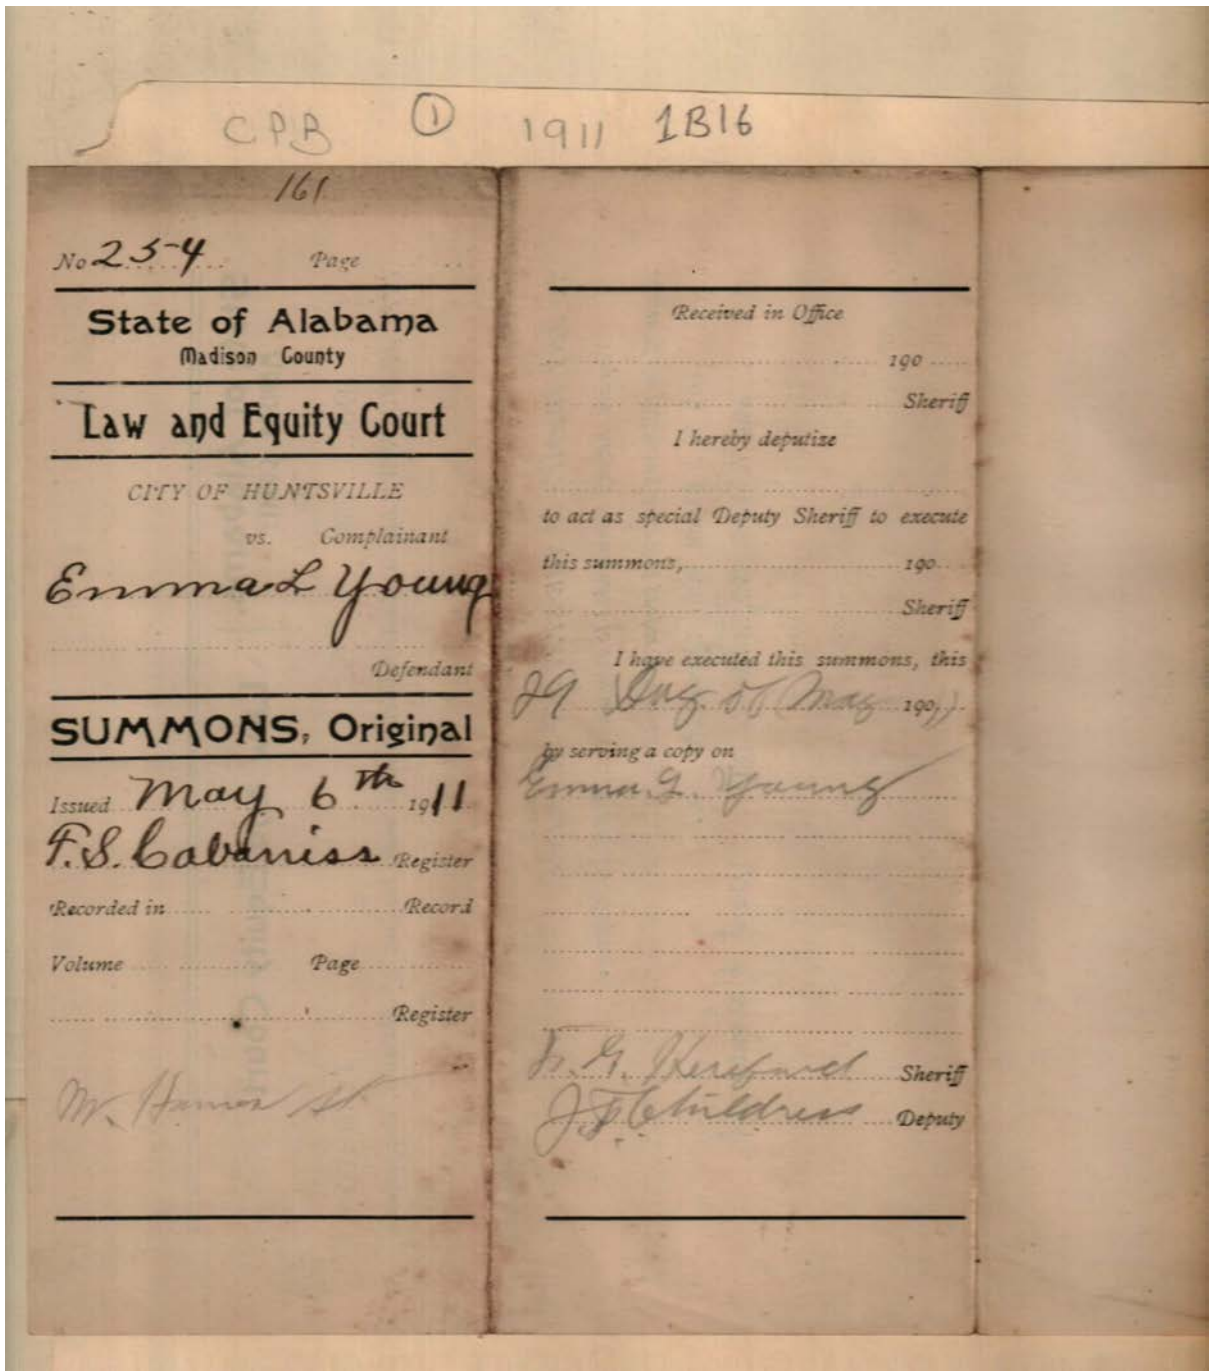 CPB ① 1911 1B16
161
No 254 Page
State of Alabama
Madison County
Law and Equity Court
CITY OF HUNTSVILLE
vs. Complainant
Emma L Young
Defendant
SUMMONS, Original
Issued May 6th 1911
F.S. Cabaniss Register
Recorded in Record
Volume Page
Register
Received in Office
190
Sheriff
I hereby deputize
to act as special Deputy Sheriff to execute
this summons, 190
Sheriff
I have executed this summons, this
29 Day of May 19011
by serving a copy on
Emma L. Young
Sheriff
J.F. Childress Deputy